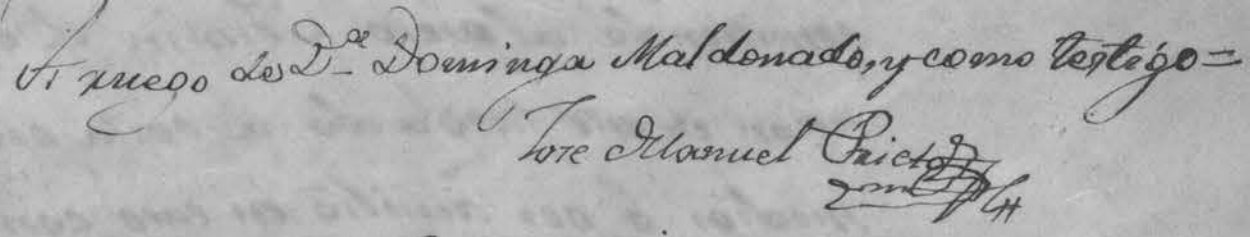 A ruego de Dª Dominga Maldonado, y como testigo=
Jose Manuel Prieto